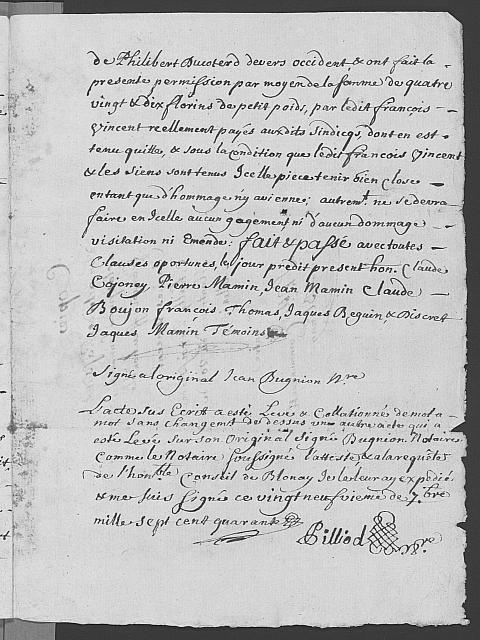 de Philibert Ducoterd devers occident, & ont fait la
presente permission par moyen de la somme de quatre
vingt & dix florins de petit poids, par ledit françois
Vincent reellement payés auxdits Sindicqs, dont en est
tenu quitte, & sous la condition que ledit francois Vincent
& les siens sont tenus Icelle piece tenir bien close
entant que d'hommage n'y avienne; autremt. ne se devra
faire en Icelle aucun gagement, ni d'aucun dommage
visitation ni Emende; fait & passé avec toutes
Clauses oportunes, le jour prédit present hon. Claude
Cojoney, Pierre Mamin, Jean Mamin Claude
Boujon francois Thomas, Jaques Beguin, & Discret
Jaques Mamin Témoins
Signé a l'original Jean Bugnion Nre
L'acte sus Ecrit a esté Levé & Collationné de mot a
mot sans changemt de dessus un autre acte qui a
esté Levé sur son Original signé Bugnion Notaire
Comme le Notaire soussigné l'atteste, & a la requeste
de l'honble Conseil de Blonay Je le leur ay expedié
& me suis signé ce vingt neufvieme de 7bre
mille sept cent quarante
Pilliod Nre.